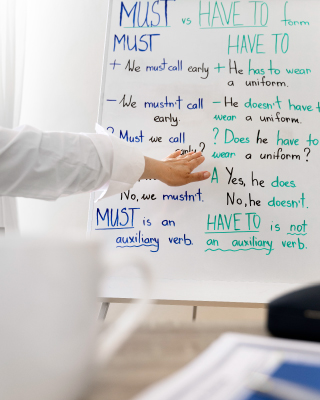 MUST vs HAVE TO form
MUST HAVE TO
+ We must call early + He has to wear
a uniform.
- We mustn't call - He doesn't have t
early. wear a uniform.
? Must we call ? Does he have to
early? wear a uniform?
A Yes, he does
No, we mustn't. No, he doesn't.
MUST is an HAVE TO is not
auxiliary verb. an auxiliary verb.